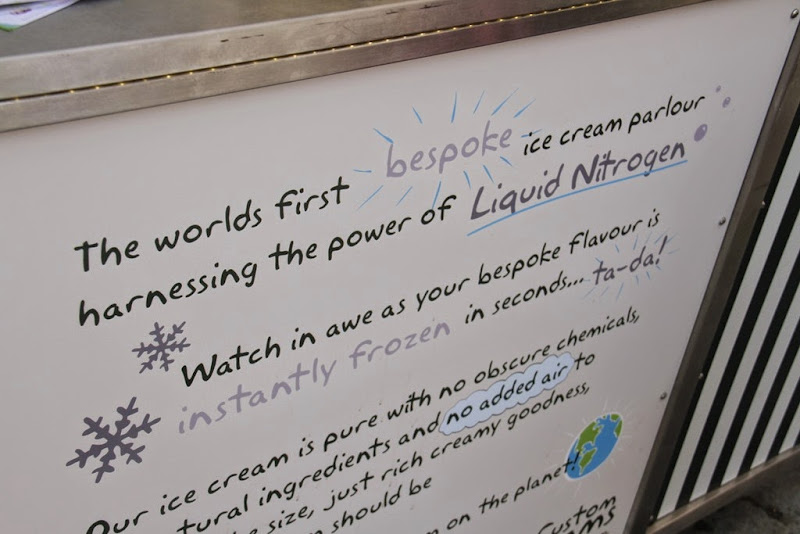 The worlds first bespoke ice cream parlour
harnessing the power of Liquid Nitrogen
Watch in awe as your bespoke flavour is
instantly frozen in seconds... ta-da!
Our ice cream is pure with no obscure chemicals,
tural ingredients and no added air to
size, just rich creamy goodness,
should be
on the planet!
Custom